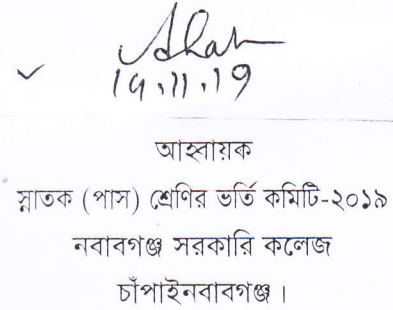 14.11.19
আহ্বায়ক
স্নাতক (পাস) শ্রেণির ভর্তি কমিটি-২০১৯
নবাবগঞ্জ সরকারি কলেজ
চাঁপাইনবাবগঞ্জ।